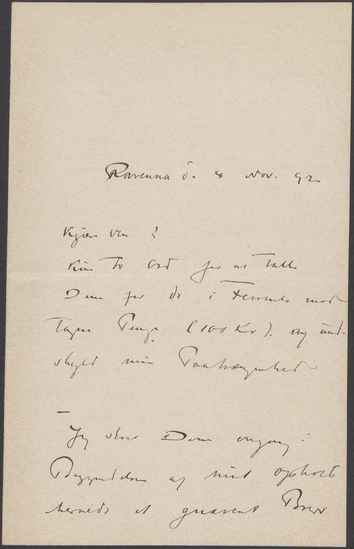 Ravenna d. 8 Nov. 92
Kjære Ven!
Kun to Ord for at takke
Dem for de i Ferrara mod-
tagne Penge (100 Kr), og und-
skyld min Paatrængenhed.
—
Jeg skrev Dem engang i
Begyndelsen af mit Ophold
hernede et Brev